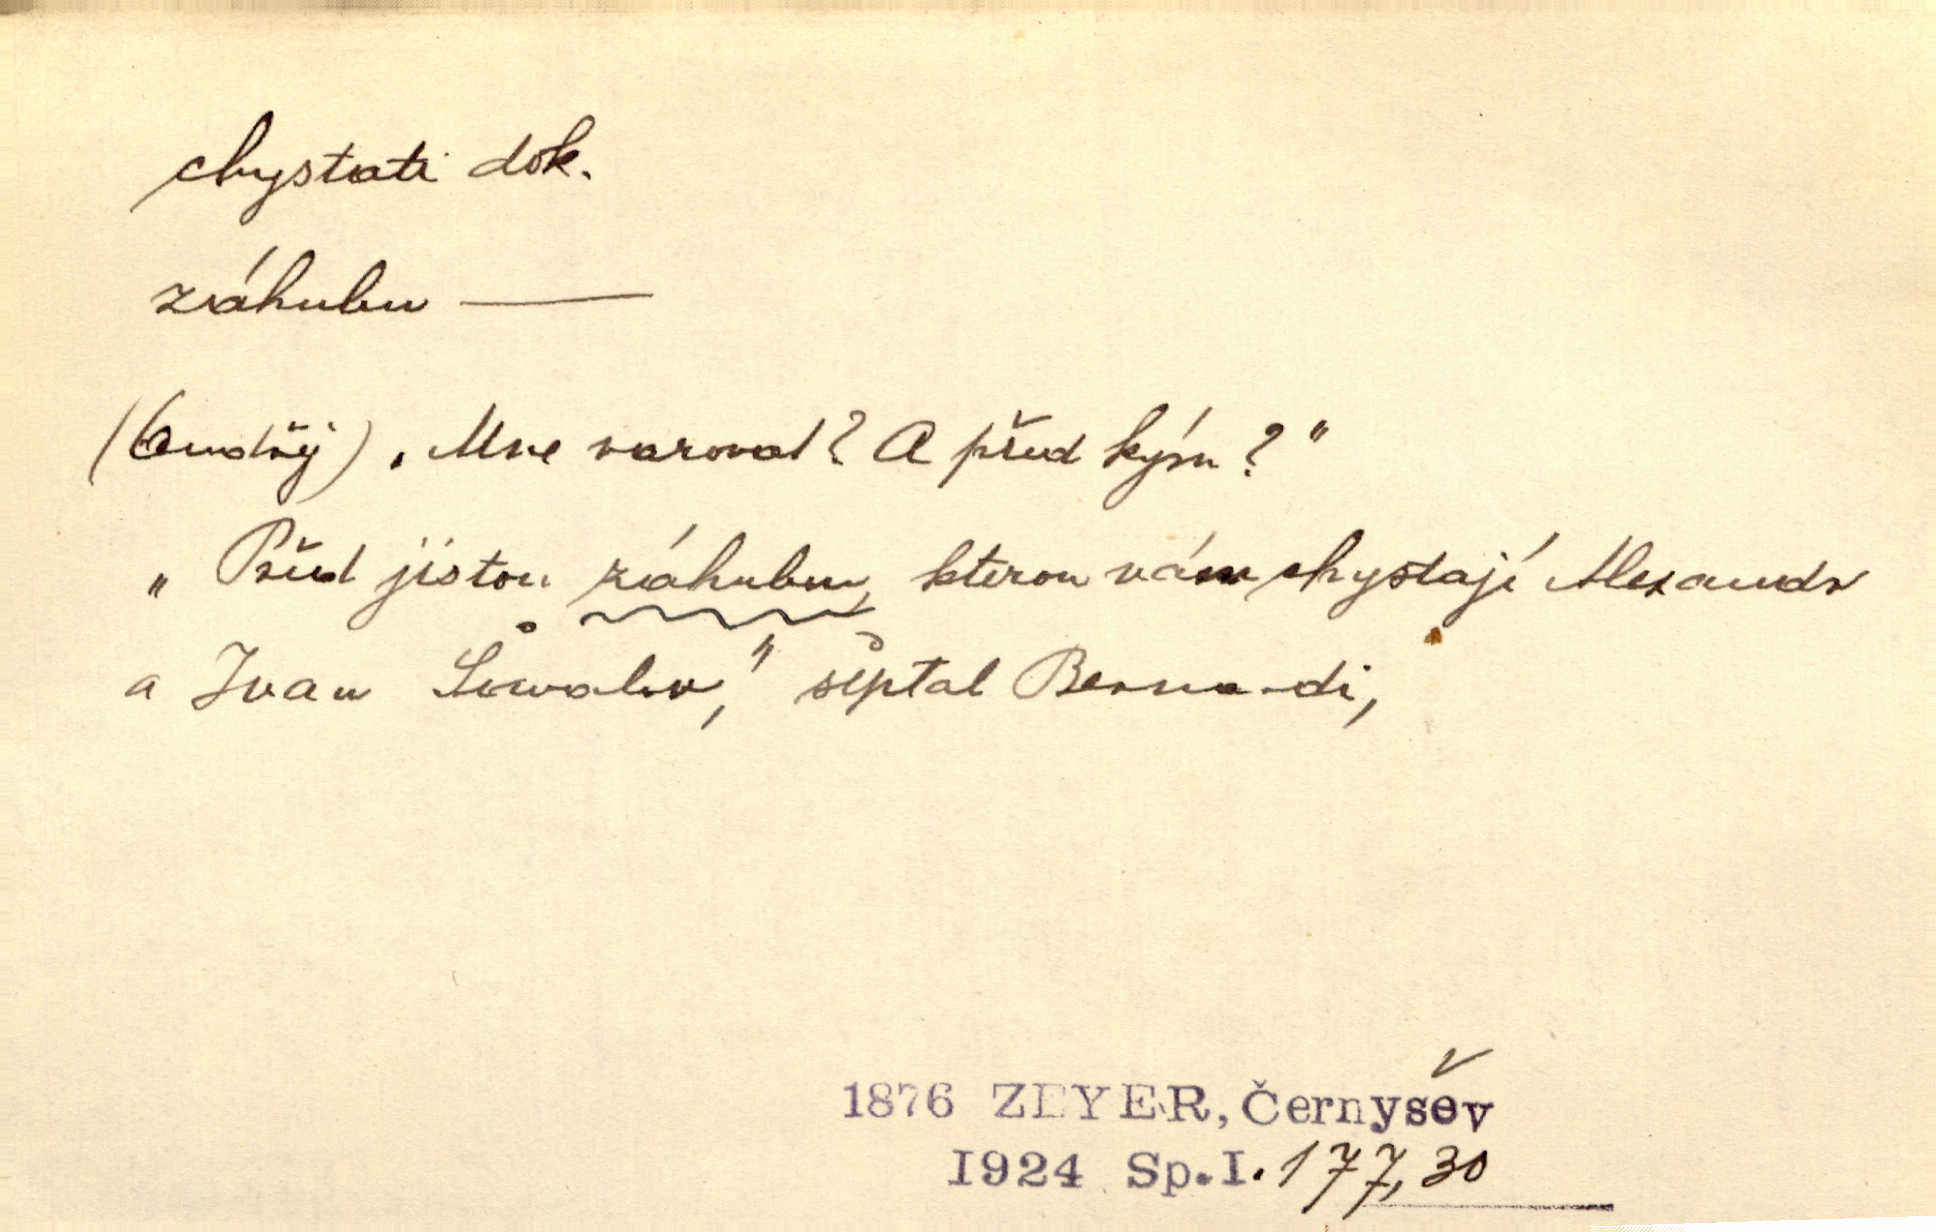 chystati dok.
záhubu —
(Ondřej) „Mne varoval? A před kým?"
„Před jistou záhubou, kterou vám chystají Alexandr
a Ivan Šuvalov," šeptal Bernardi,
1876 ZEYER, Černyšev
1924 Sp.I. 177,30